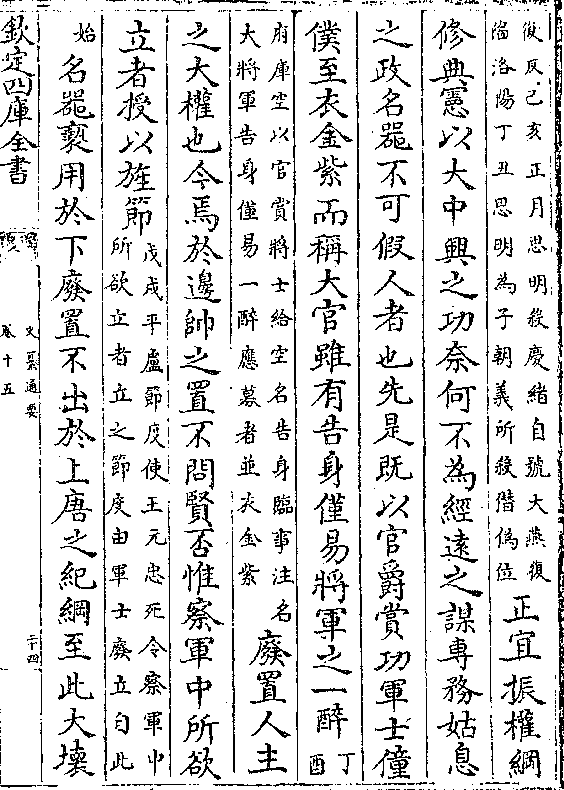 復反己亥正月思明殺慶緒自號大燕復
陷洛陽丁丑思明為子朝義所殺僭偽位
正宜振權綱
修典憲以大中興之功奈何不為經遠之謀專務姑息
之政名器不可假人者也先是既以官爵賞功軍士僮
僕至衣金紫而稱大官雖有告身僅易將軍之一醉丁酉
府庫空以官賞將士給空名告身臨事注名
大將軍告身僅易一醉應募者並衣金紫
廢置人主
之大權也今焉於邊帥之置不問賢否惟察軍中所欲
立者授以旌節
戊戌平盧節度使王元忠死令察軍中
所欲立者立之節度由軍士廢立自此
始
名器褻用於下廢置不出於上唐之紀綱至此大壞
欽定四庫全書
史纂通要
卷十五
二十四